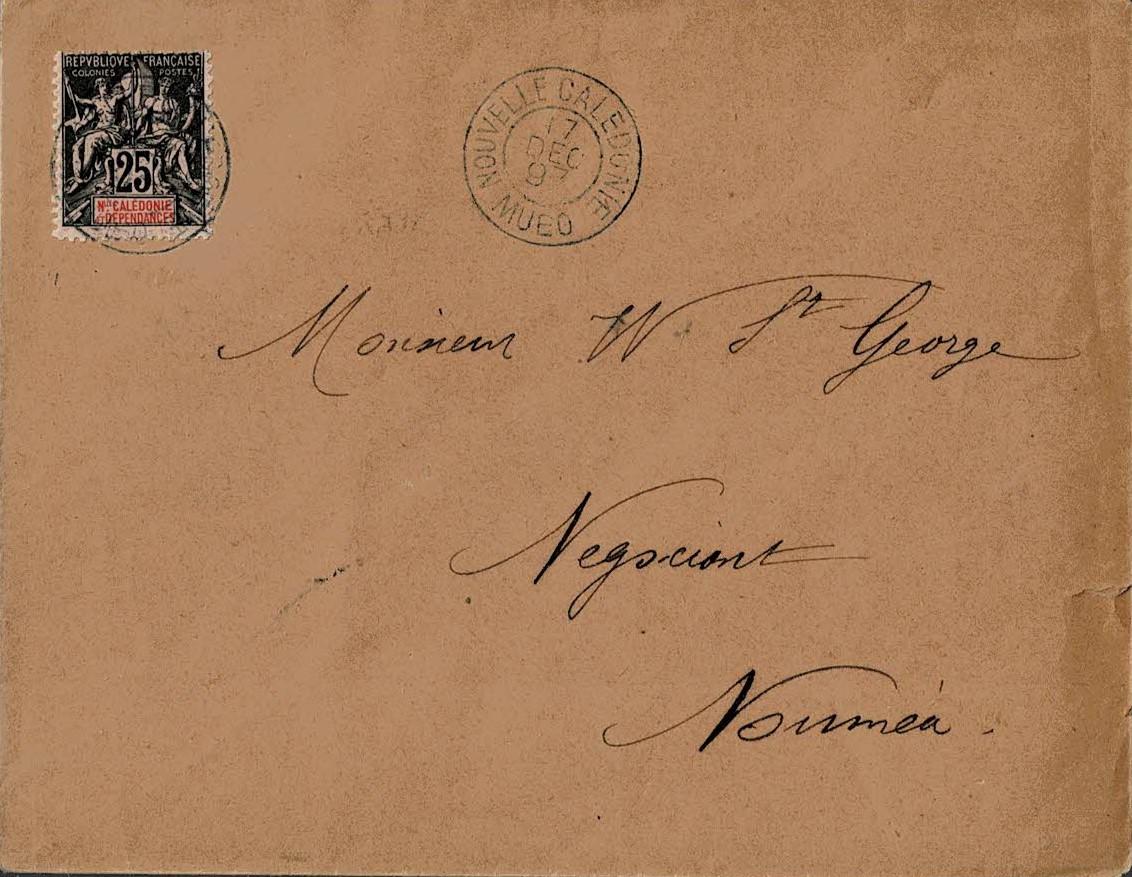 REPVBLIQVE FRANÇAISE
COLONIES POSTES
25
Nlle CALÉDONIE
& DÉPENDANCES
NOUVELLE CALEDONIE
17
DEC
97
MUEO
Monsieur W St George
Negociant
Nouméa.